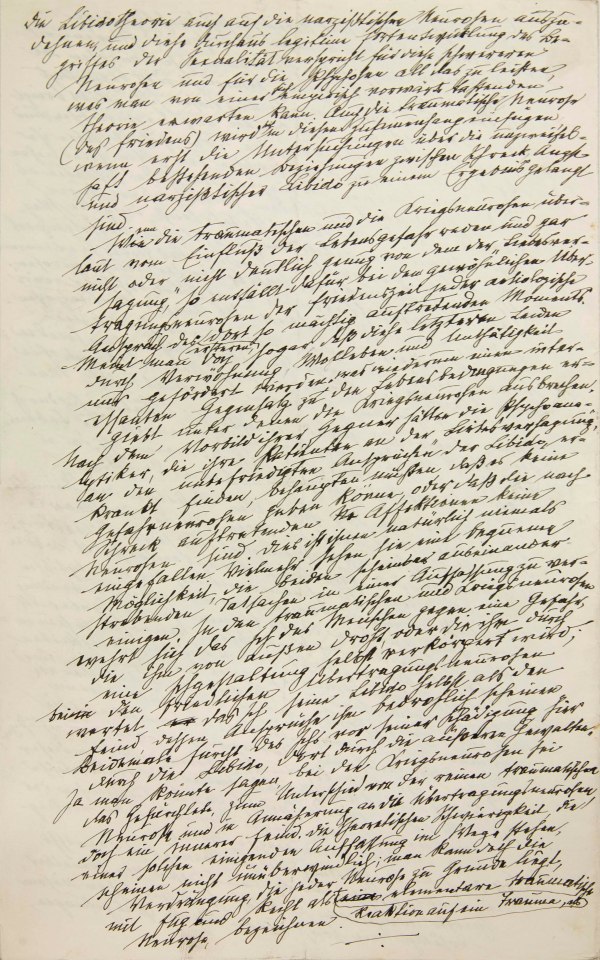 die Libidotheorie auch auf die narzißtischen Neurosen auszu-
dehnen, und diese durchaus legitime Fortentwicklung des Be-
griffes der Sexualität verspricht für diese schwereren
Neurosen und für die Psychosen all das zu leisten,
was man von einer sich empirisch vorwärts tastenden
Theorie erwarten kann. Auch die traumatische Neurose
(des Friedens) wird sich in diesen Zusammenhang einfügen
wenn erst die Untersuchungen über die unzweifel-
haft bestehenden Beziehungen zwischen Schreck Angst
und narzißtischer Libido zu einem Ergebnis gelangt
sind.
Wenn die traumatischen und die Kriegsneurosen über-
laut vom Einfluß der Lebensgefahr reden und gar
nicht oder nicht deutlich genug von dem der „Liebesver-
sagung“, so entfällt dafür bei den gewöhnlichen Über-
tragungsneurosen der Friedenszeit jeder aetiologische
Anspruch des dort so mächtig auftretenden Moments.
Meint man doch sogar, daß diese letzteren Leiden
durch Verwöhnung, Wolleben und Unthätigkeit
nur gefördert werden, was wiederum einen inter-
essanten Gegensatz zu den Lebensbedingungen er-
giebt unter denen die Kriegsneurosen ausbrechen.
Nach dem Vorbild ihrer Gegner hätten die Psychoana-
lytiker, die ihre Patienten an der „Liebesversagung,
an den unbefriedigten Ansprüchen der Libido, er-
krankt finden, behaupten müßen daß es keine
Gefahrneurosen geben könne, oder daß die nach
Schreck auftretenden Affektionen keine
Neurosen sind. Dies ist ihnen natürlich niemals
eingefallen. Vielmehr sehen sie eine bequeme
Möglichkeit, die beiden scheinbar auseinander
strebenden Tatsachen in einer Auffassung zu ver-
einigen. In den traumatischen und Kriegsneurosen
wehrt sich das Ich des Menschen gegen eine Gefahr,
die ihm von außen droht, oder die ihm durch
eine Ichgestaltung selbst verkörpert wird;
bei den friedlichen Übertragungsneurosen
wertet das Ich seine Libido selbst als den
Feind, dessen Ansprüche ihm bedrohlich scheinen.
Beidemale Furcht des Ichs vor seiner Schädigung: hier
durch die Libido, dort durch die äußeren Gewalten.
Ja man könnte sagen, bei den Kriegsneurosen sei
das Gefürchtete, zum Unterschied von der reinen traumatischen
Neurose und in Annäherung an die Übertragungsneurosen,
doch ein innerer Feind. Die theoretischen Schwierigkeiten, die
einer solchen einigenden Auffassung im Wege stehen,
scheinen nicht unüberwindlich; man kann doch die
Verdrängung, die jeder Neurose zu Grunde liegt,
mit Fug und Recht als Reaktion auf ein Trauma, als elementare traumatische
Neurose bezeichnen.